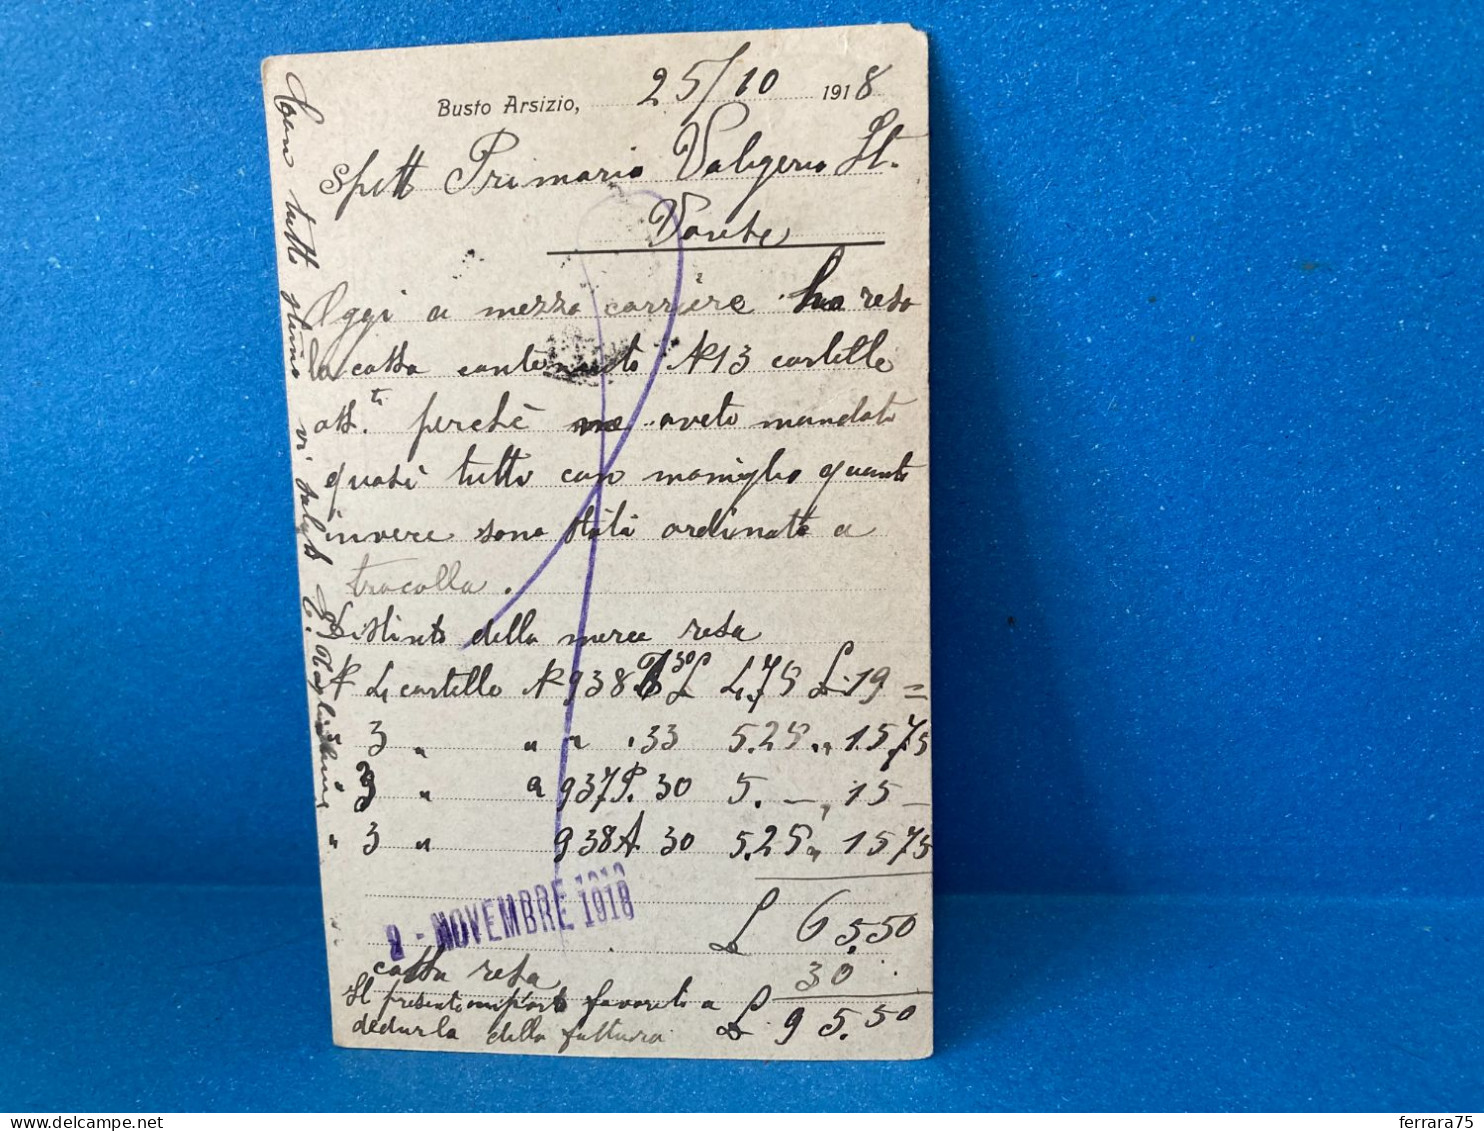 Busto Arsizio, 25/10 1918
Spett Primaria Valigeria It.
Varese
Oggi a mezzo corriere ho reso
la cassa contenente N 13 cartelle
ass.ti perchè me avete mandato
quasi tutte con maniglia quante
invece sono state ordinate a
tracolla.
Distinta della merce resa
N 4 cartelle N 938 30 L 4.75 L. 19 =
3 " " " .33 5.25 " 15.75
3 " " 937P. 30 5. — , 15 —
" 3 " 938A. 30 5.25 " 15 75
2 - NOVEMBRE 1918
£ 65.50
cassa resa 30
Il presente importo favorete a
dedurla della fattura £ 95.50
Con tutta stima vi saluto
ferrara75